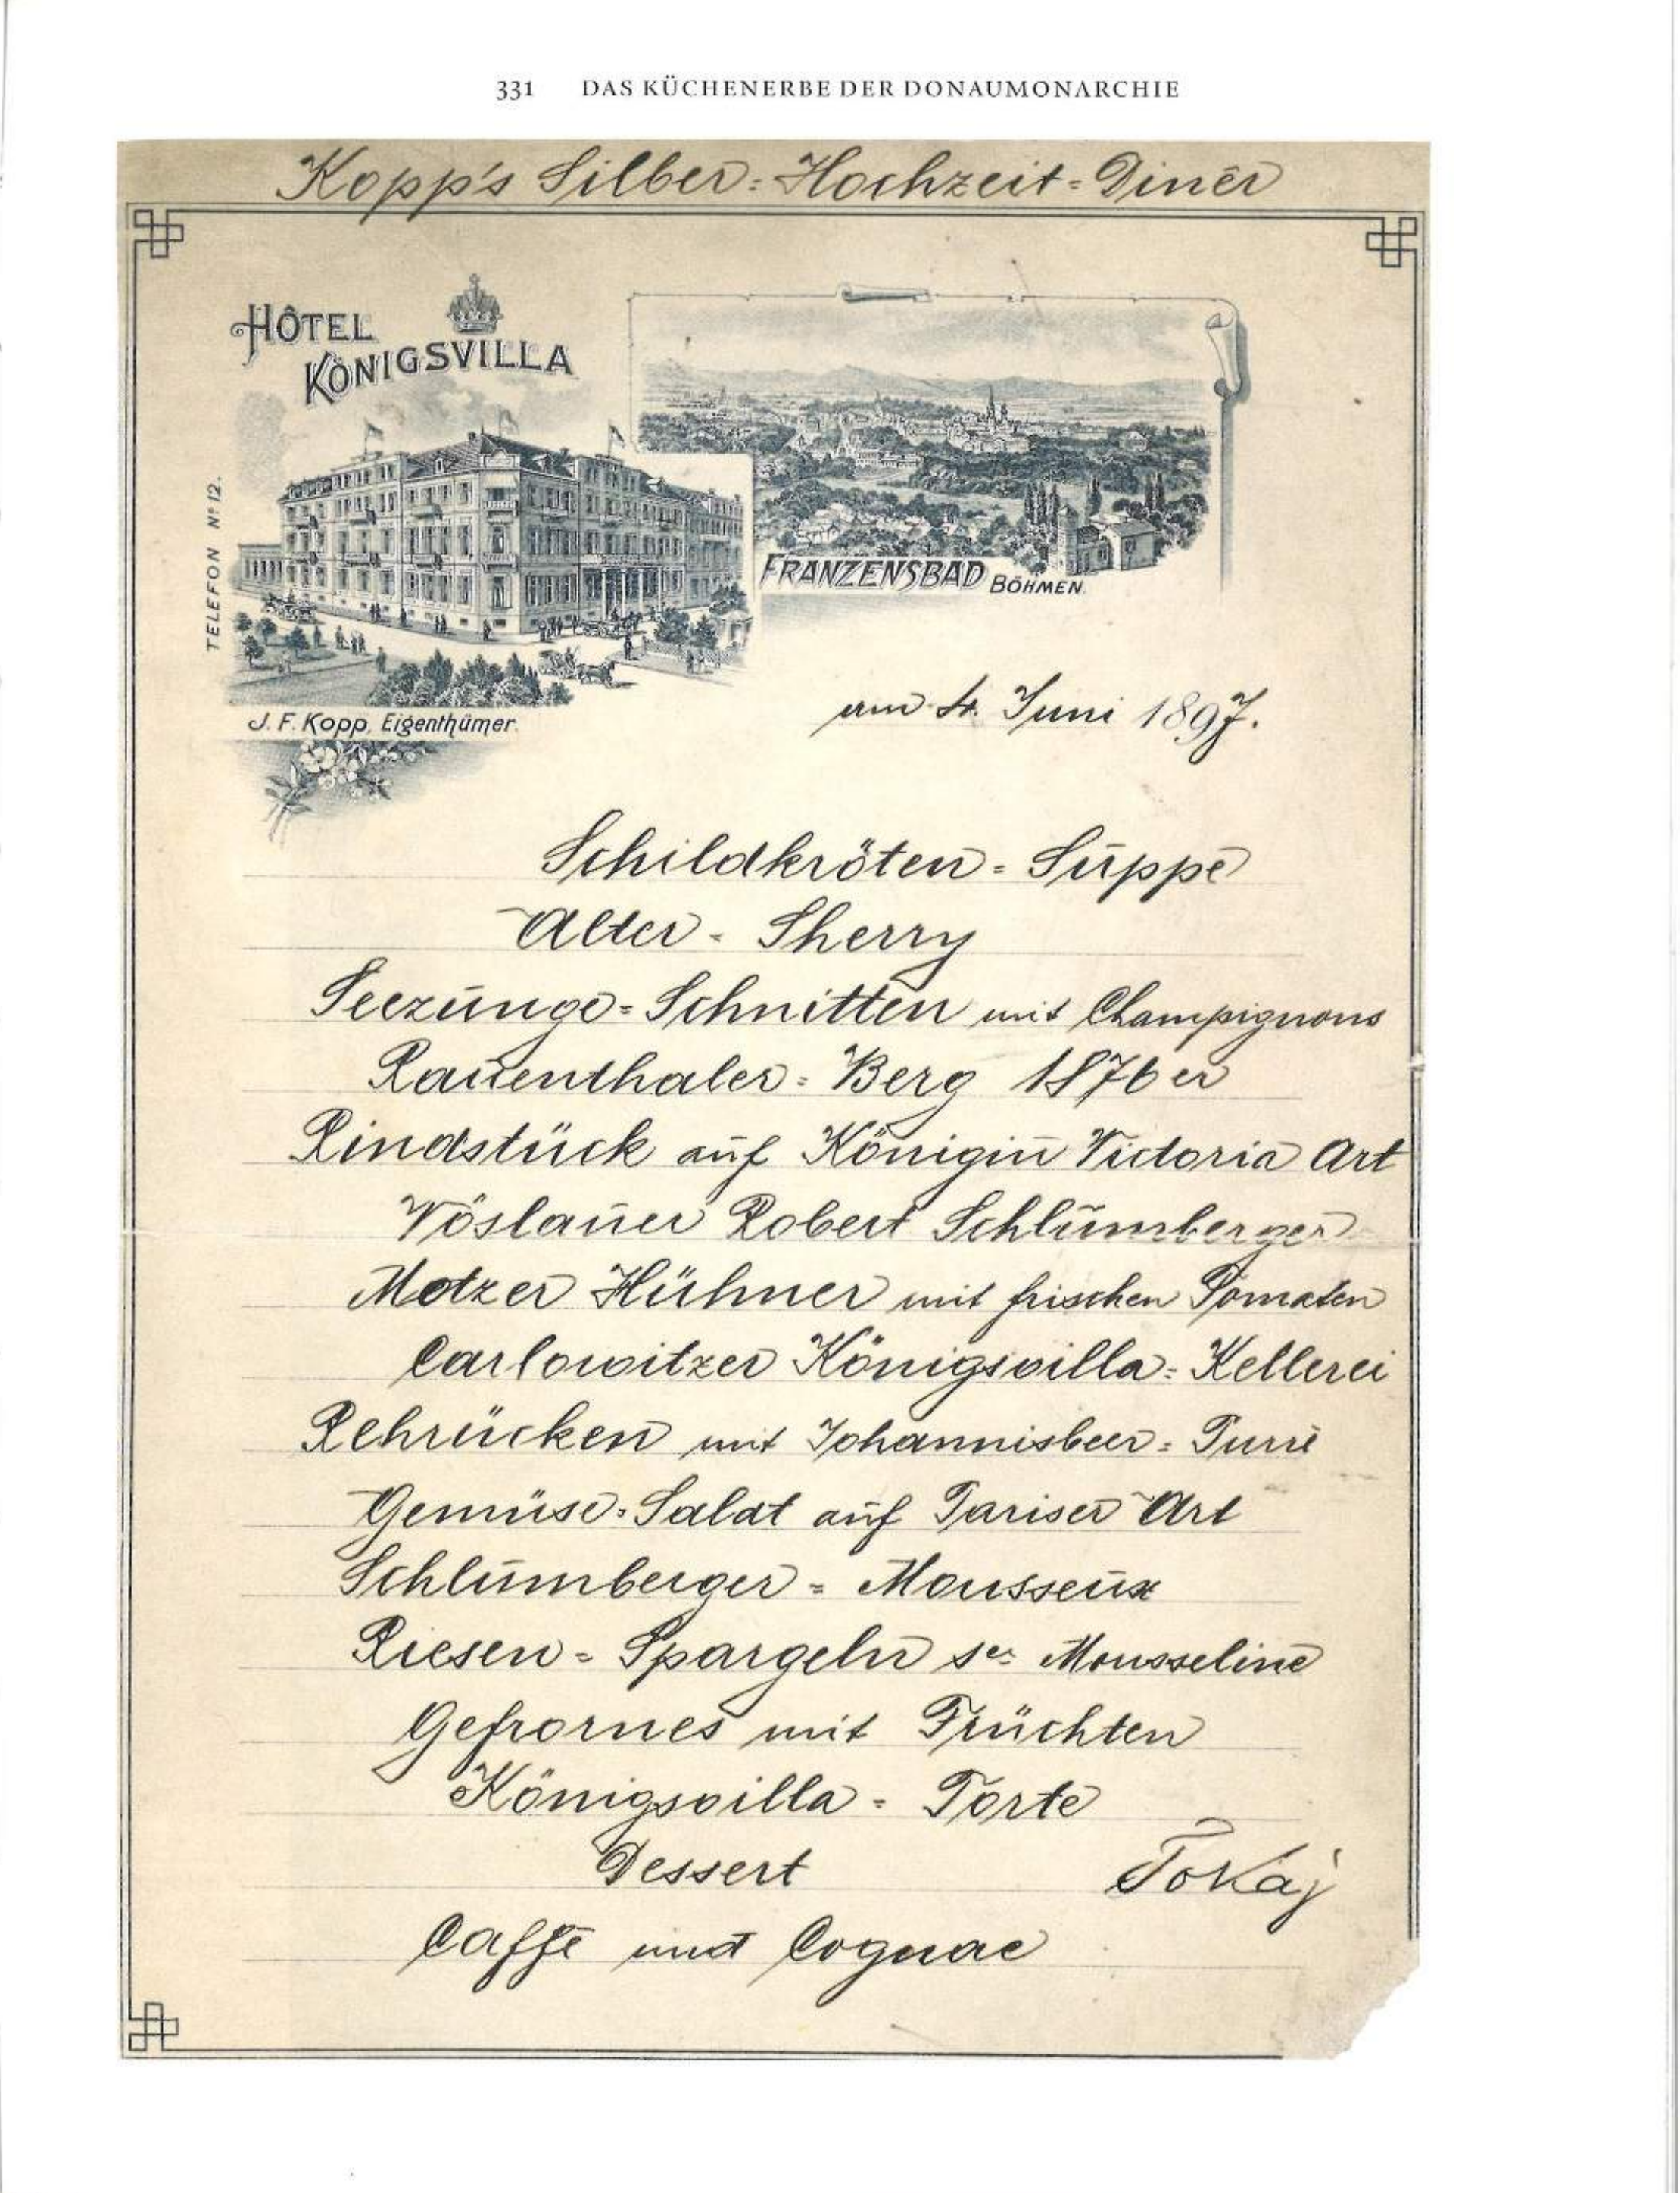 331 DAS KÜCHENERBE DER DONAUMONARCHIE
Kopp's Silber=Hochzeit=Diner
HÔTEL
KÖNIGSVILLA
TELEFON Nº 12.
FRANZENSBAD BÖHMEN.
J. F. Kopp, Eigenthümer.
am 4. Juni 1897.
Schildkröten=Suppe
Alter-Sherry
Seezunge=Schnitten mit Champignons
Rauenthaler=Berg 1876er
Rindstück auf Königin Victoria Art
Vöslauer Robert Schlumberger
Metzer Hühner mit frischen Tomaten
Carlowitzer Königsvilla=Kellerei
Rehrücken mit Johannisbeer=Purré
Gemüse=Salat auf Pariser Art
Schlumberger=Mousseux
Riesen=Spargeln sce Mousseline
Gefrornes mit Früchten
Königsvilla=Torte
Dessert Tokaj
Caffé und Cognac